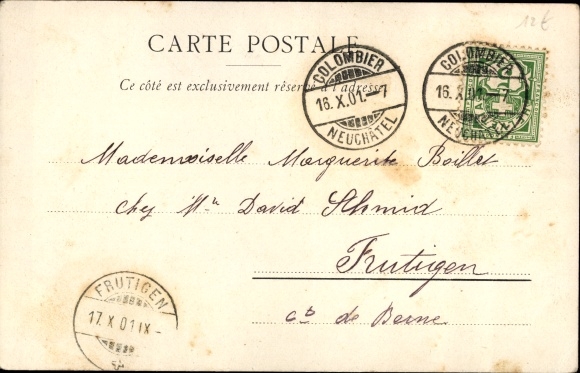 12 €
CARTE POSTALE
Ce côté est exclusivement réservé à l'adresse
COLOMBIER
16.X.01.–7
NEUCHÂTEL
COLOMBIER
16.X.01.–7
NEUCHÂTEL
Mademoiselle Marguerite Baillet
chez Mr David Schmid
Frutigen
ct. de Berne
FRUTIGEN
17.X.01.IX–